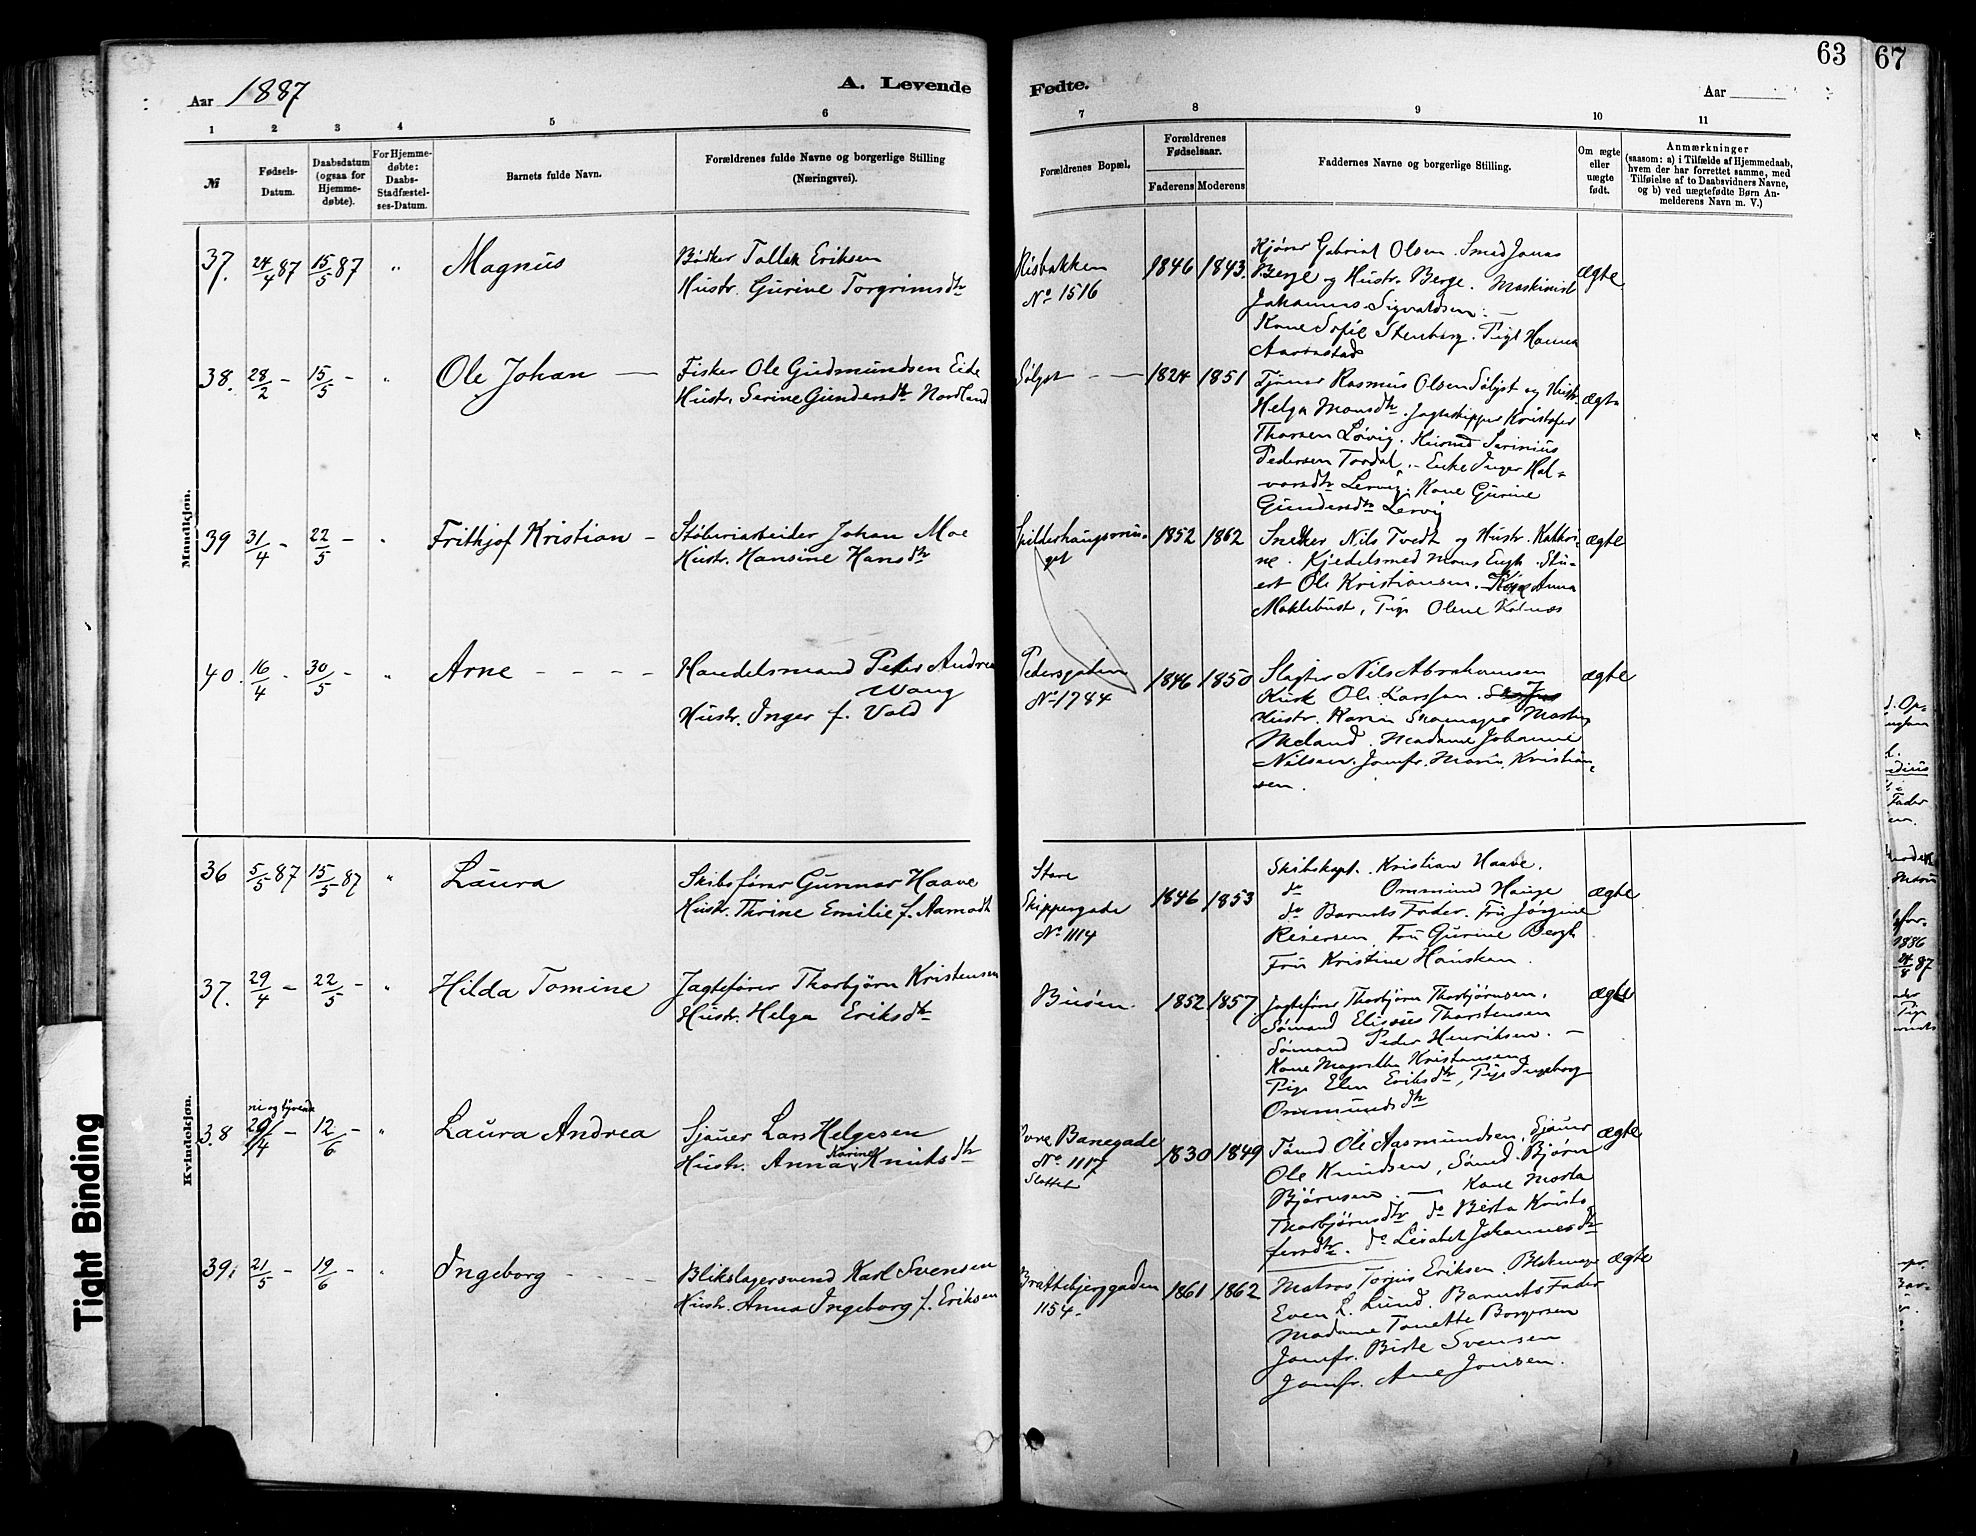 63
67
Aar 1887
A. Levende
Fødte.
Aar
1 2 3 4 5 6 7 8 9 10 11
№
Fødsels-
Datum.
Daabsdatum
(ogsaa for
Hjemme-
døbte).
For Hjemme-
døbte:
Daabs-
Stadfæstel-
ses-Datum.
Barnets fulde Navn.
Forældrenes fulde Navne og borgerlige Stilling
(Næringsvei).
Forældrenes Bopæl.
Forældrenes
Fødselsaar.
Faderens Moderens
Faddernes Navne og borgerlige Stilling.
Om ægte
eller
uægte
født.
Anmærkninger
(saasom: a) i Tilfælde af Hjemmedaab,
hvem der har forrettet samme, med
Tilføielse af to Daabsvidners Navne,
og b) ved uægtefødte Børn An-
melderens Navn m. V.)
Mandkjøn.
37. 24/4 87 15/5 87 " Magnus
Bødker Tollak Eriksen
Hustr. Gurine Torgrimsdtr
Risbakken
No 1516
1846 1843.
Kjører Gabriel Olsen. Smed Jonas
Berge og Hustr. Berge. Maskinist
Johannes Sigvaldsen. —
Kone Sofie Stenberg. Pige Hanna
ægte
38. 28/2 - 15/5 - " Ole Johan —
Fisker Ole Gudmundsen Eide
Hustr. Serine Gundersdtr Nordland
Sølyst - —
1824 1851
Tjener Rasmus Olsen Sølyst og Hustr.
Helga Monsdtr. Jagteskipper Kristofer
Thorsen Løvig. Serinius
Pedersen Tordal. - Enke Inger Hal-
vorsdtr Lervig. Kone Gurine
Gundersdtr Lervig
ægte
39 31/4 - 22/5 - " Frithjof Kristian -
Støberiarbeider Johan Moe
Hustr. Hansine Hansdtr
1852 1862
Snedker Nils Tvedt og Hustr. Kathri-
ne. Kjedelsmed Mons Engh. Stu-
ert Ole Kristiansen. Anna
Maklebust, Pige Olene Kalnæs
ægte
40. 16/4 - 30/5 - " Arne - - - -
Handelsmand Peter Andrea
Wang
Hustr. Inger f. Vold
Pedersgaden
No 1784
1846 1850
Slagter Nils Abrahamsen
Ole Larssen.
Hustr. Karin Martin
Meland. Madame Johanne
Nilsen. Jomfr. Marie Kristian-
sen.
ægte
Kvindekjøn.
36 5/5 87 15/5 87 " Laura
Skibsfører Gunnar Haave
Hustr. Thrine Emilie f. Aamodt
Store
Skippergade
No 1114
1846 1853
Skibskapt. Kristian Haave.
do Ommund Hauge
do Barnets Fader. Fru Jørgine
Reiersen, Fru Gurine Bergh
Fru Kristine Hausken.
ægte
37. 29/4 - 22/5 - " Hilda Tomine
Jagtefører Thorbjørn Kristensen
Hustr. Helga Eriksdtr
Buøen.
1852 1857.
Jagtefører Thorbjørn Thorbjørnsen.
Sømand Elisæus Thorstensen
Sømand Peder Henriksen. —
Kone Magrethe Kristensen,
Pige Elen Eriksdtr, Pige Ingeborg
Ommundsdtr
ægte
ni og tyvende
38 29/4 - 12/6 - " Laura Andrea
Sjauer Lars Helgesen
Hustr. Anna Karine Knutsdtr
Øvre Banegade
No 1117
Slottet
1830 1849
Tømd Ole Aasmundsen, Sjauer
Ole Knudsen, Sømd. Bjørn
Bjørnsen. — Kone Marta
Thorbjørnsdtr do Berta Kristo
fersdtr. do Lisabet Johannesdtr
ægte
39. 21/5 - 19/6 - " Ingeborg - - - -
Blikslagersvend Karl Svensen
Hustr. Anna Ingeborg f. Eriksen
Brattebjerggaden
1154.
1861 1862
Matros Torjus Eriksen.
Even L. Lund. Barnets Fader
Madame Tonette Borgersen
Jomfr. Birte Svensen
Jomfr. Ane Jonsen.
ægte
Tight Binding